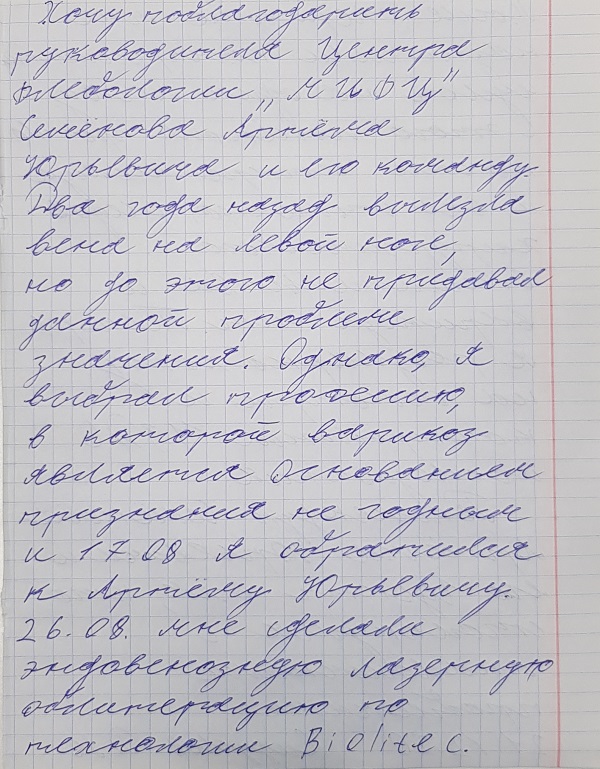 Хочу поблагодарить
руководителя Центра
Флебологии "МИФЦ"
Семёнова Артёма
Юрьевича и его команду
Два года назад вылезла
вена на левой ноге,
но до этого не придавал
данной проблеме
значения. Однако, я
выбрал професию,
в которой варикоз
является основанием
признания не годным
и 17.08 я обратился
к Артёму Юрьевичу.
26.08. мне сделали
эндовенозную лазерную
облитерацию по
технологии Biolitec.